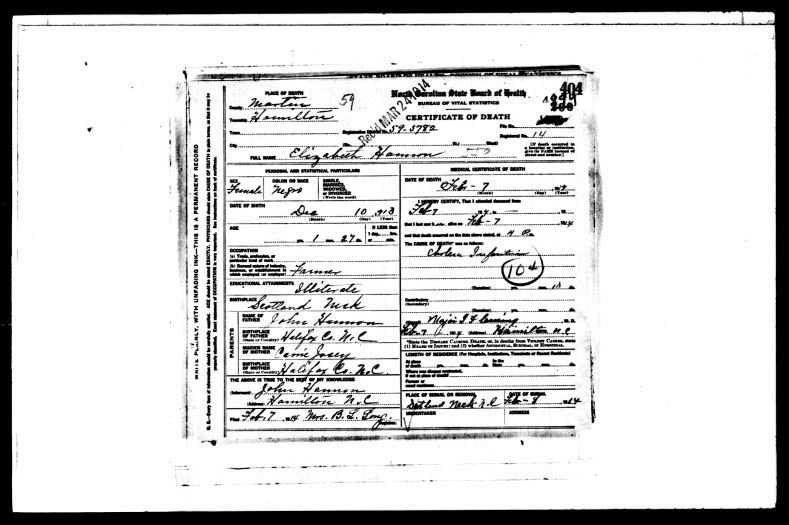 PLACE OF DEATH
County Martin 59
Township Hamilton
Town
City
Rec'd MAR 24 1914
North Carolina State Board of Health 404
BUREAU OF VITAL STATISTICS
CERTIFICATE OF DEATH
File No.
Registration District No. 59-5782
Registered No. 14
(No. St.; Ward)
(If death occurred in a hospital or institution, give its NAME instead of street and number.)
FULL NAME Elizabeth Hannon
PERSONAL AND STATISTICAL PARTICULARS
SEX Female
COLOR OR RACE Negro
SINGLE, MARRIED, WIDOWED, or DIVORCED (Write the word)
DATE OF BIRTH
Dec 10 1913
(Month) (Day) (Year)
AGE
yrs. 1 mos. 27 ds.
If LESS than 1 day, hrs. or min.
OCCUPATION
(a) Trade, profession, or particular kind of work
(b) General nature of industry, business, or establishment in which employed (or employer) Farmer
EDUCATIONAL ATTAINMENTS
Illiterate
BIRTHPLACE
Scotland Neck
PARENTS
NAME OF FATHER John Hannon
BIRTHPLACE OF FATHER (State or Country) Halifax Co. N.C
MAIDEN NAME OF MOTHER Carrie Josey
BIRTHPLACE OF MOTHER (State or Country) Halifax Co. N.C
THE ABOVE IS TRUE TO THE BEST OF MY KNOWLEDGE
(Informant) John Hannon
(Address) Hamilton N.C
Filed Feb. 7 1914 Mrs. B. L. Long
Registrar
MEDICAL CERTIFICATE OF DEATH
DATE OF DEATH
Feb - 7
(Month) (Day) (Year)
I HEREBY CERTIFY, That I attended deceased from
Feb 7
that I last saw h alive on Feb - 7 1914
and that death occurred on the date above stated, at 4 P m.
The CAUSE OF DEATH* was as follows:
Cholera Infantum
104
(Duration)
Contributory
(Secondary)
(Duration)
M. D.
Feb. 7 1914 (Address) Hamilton N.C
*State the DISEASE CAUSING DEATH, or, in deaths from VIOLENT CAUSES, state (1) MEANS OF INJURY; and (2) whether ACCIDENTAL, SUICIDAL, or HOMICIDAL.
LENGTH OF RESIDENCE (For Hospitals, Institutions, Transients or Recent Residents)
At place of death yrs. mos. ds. In the State yrs. mos. ds.
Where was disease contracted, if not at place of death?
Former or usual residence
PLACE OF BURIAL OR REMOVAL
DATE OF BURIAL
Feb - 8 1914
UNDERTAKER
ADDRESS
WRITE PLAINLY, WITH UNFADING INK—THIS IS A PERMANENT RECORD